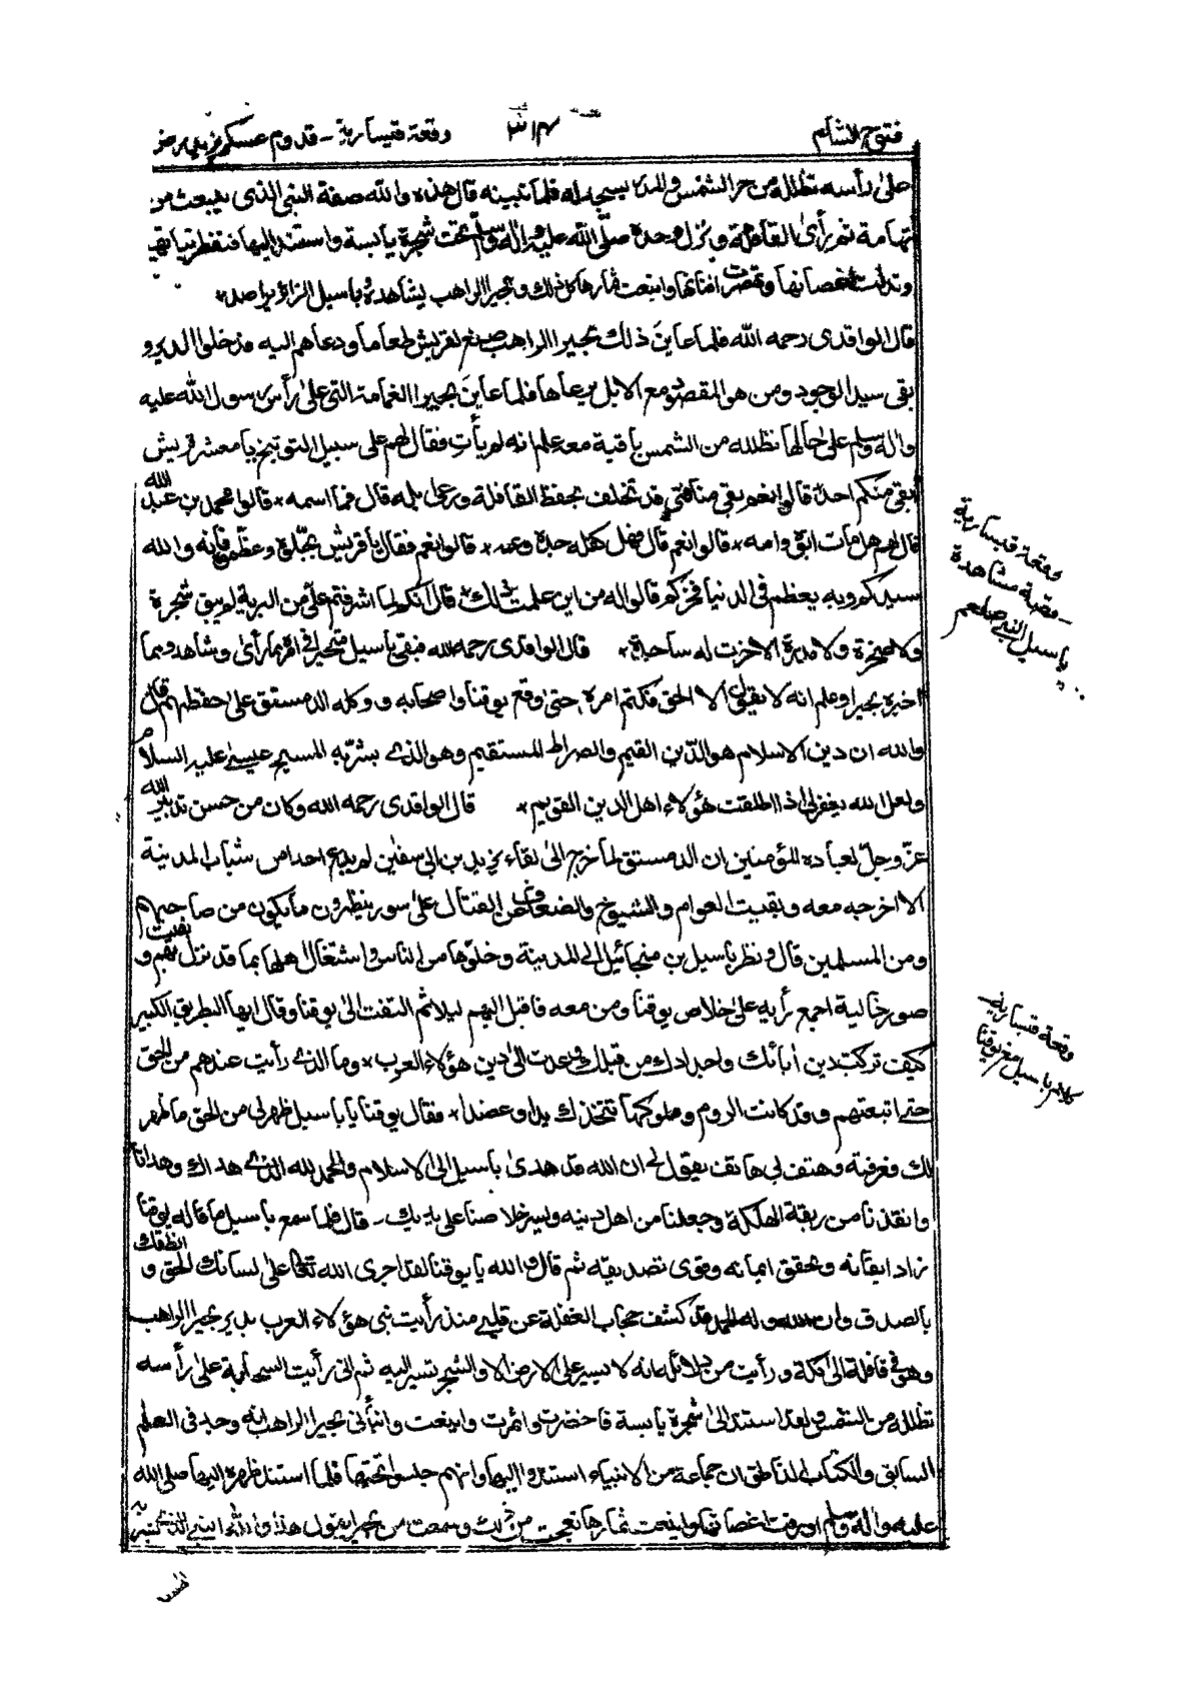 فتوح الشام
وقعة قيسارية - قدوم عسكر
على رأسه تظلله من حر الشمس فلما تبينه قال هذه والله صفة النبي الذى يبعث من
تهامة ثم رأى القافلة ونزل وحده صلى الله عليه واله وسلم تحت شجرة يابسة واستند اليها
وتدلت اغصانها واينعت ثمارها كل ذلك وبحيرا الراهب يشاهده وباسيل
قال الواقدى رحمه الله فلما عاين ذلك بحيرا الراهب صنع لقريش طعاما ودعاهم اليه فدخلوا الدير و
بقى سيد الوجود ومن هو المقصود مع الابل يرعاها فلما عاين بحيرا الغمامة التى على رأس رسول الله عليه
واله وسلم على حالها تظلله من الشمس باقية معه علم انه لم يأت فقال لهم على سبيل التوبيخ يا معشر قريش
أبقى منكم احد قالوا نعم بقى منا فتى قد تخلف بحفظ القافلة ورعى ابله قال فما اسمه * قالوا محمد بن عبد الله
قال لهم هل مات ابوه وامه * قالوا نعم قال فهل كفله جده وعمه * قالوا نعم فقال يا قريش بجلوه وعظموه فانه والله
سيدكم وبه يعظم فى الدنيا فخركم قالوا له من اين علمت ذلك * قال انكم لما اشرفتم على من البرية لم يبق شجرة
ولا صخرة ولا مدرة الا خرت له ساجدة * قال الواقدى رحمه الله فبقى باسيل متحيرا فى امره مما رأى وشاهد وبما
اخبره بحيرا وعلم انه لا يقول الا الحق فكتم امره حتى وقع يوقنا واصحابه ووكله الدمستق على حفظهم ثم قال
والله ان دين الاسلام هو الدين القيم والصراط المستقيم وهو الذى بشر به المسيح عيسى عليه السلام
ولعل الله يغفر لى اذا اطلقت هؤلاء اهل الدين القويم * قال الواقدى رحمه الله وكان من حسن تدبير الله
عز وجل لعباده المؤمنين ان الدمستق لما خرج الى لقاء يزيد بن ابى سفين لم يدع احدا من شباب المدينة
الا اخرجه معه وبقيت العوام والشيوخ والضعاف عن القتال على سور ينظرون ما يكون من صاحبهم
ومن المسلمين قال ونظر باسيل بن منجائيل الى المدينة وخلوها من الناس واشتغال اهلها بما قد نزل بهم وبقيت
صور خالية اجمع رأيه على خلاص يوقنا ومن معه فاقبل اليهم ليلا ثم التفت الى يوقنا وقال ايها البطريق الكبير
كيف تركت دين أبائك واجدادك من قبلك وعدت الى دين هؤلاء العرب * وما الذى رأيت عندهم من الحق
حتى اتبعتهم وقد كانت الروم وملوكها تتخذك يدا وعضدا * فقال يوقنا يا باسيل ظهر لى من الحق ما ظهر
لك فعرفته وهتف لى هاتف يقول لى ان الله قد هدى باسيل الى الاسلام والحمد لله الذى هداك وهدانا
وانقذنا من ربقة الهلكة وجعلنا من اهل دينه ويسر خلاصنا على يديك - قال فلما سمع باسيل ما قاله يوقنا
زاد ايقانه وتحقق ايمانه وقوى تصديقه ثم قال والله يا يوقنا لقد اجرى الله تعالى على لسانك الحق وانطقك
بالصدق وان الله وله الحمد قد كشف حجاب الغفلة عن قلبى منذ رأيت نبى هؤلاء العرب بدير بحيرا الراهب
وهو فى قافلة الى مكة ورأيت من دلائله انه لا يسير على الارض الا والشجر تسير اليه ثم انى رأيت السحابة على رأسه
تظلله من الشمس ولقد استند الى شجرة يابسة فاخضرت واثمرت واينعت وانبأنى بحيرا الراهب انه وجد فى العلم
السابق والكتاب الناطق ان جماعة من الانبياء استندوا اليها وانهم جلسوا تحتها فلما استند ظهره اليها صلى الله
عليه واله وسلم اورقت اغصانها واينعت ثمارها فعجبت من ذلك وسمعت من بحيرا يقول هذا والله النبى الذى بشر
وقعة قيسارية
- قصة مشاهدة
باسيل النبى صلعم
وقعة قيسارية
كلام باسيل مع يوقنا